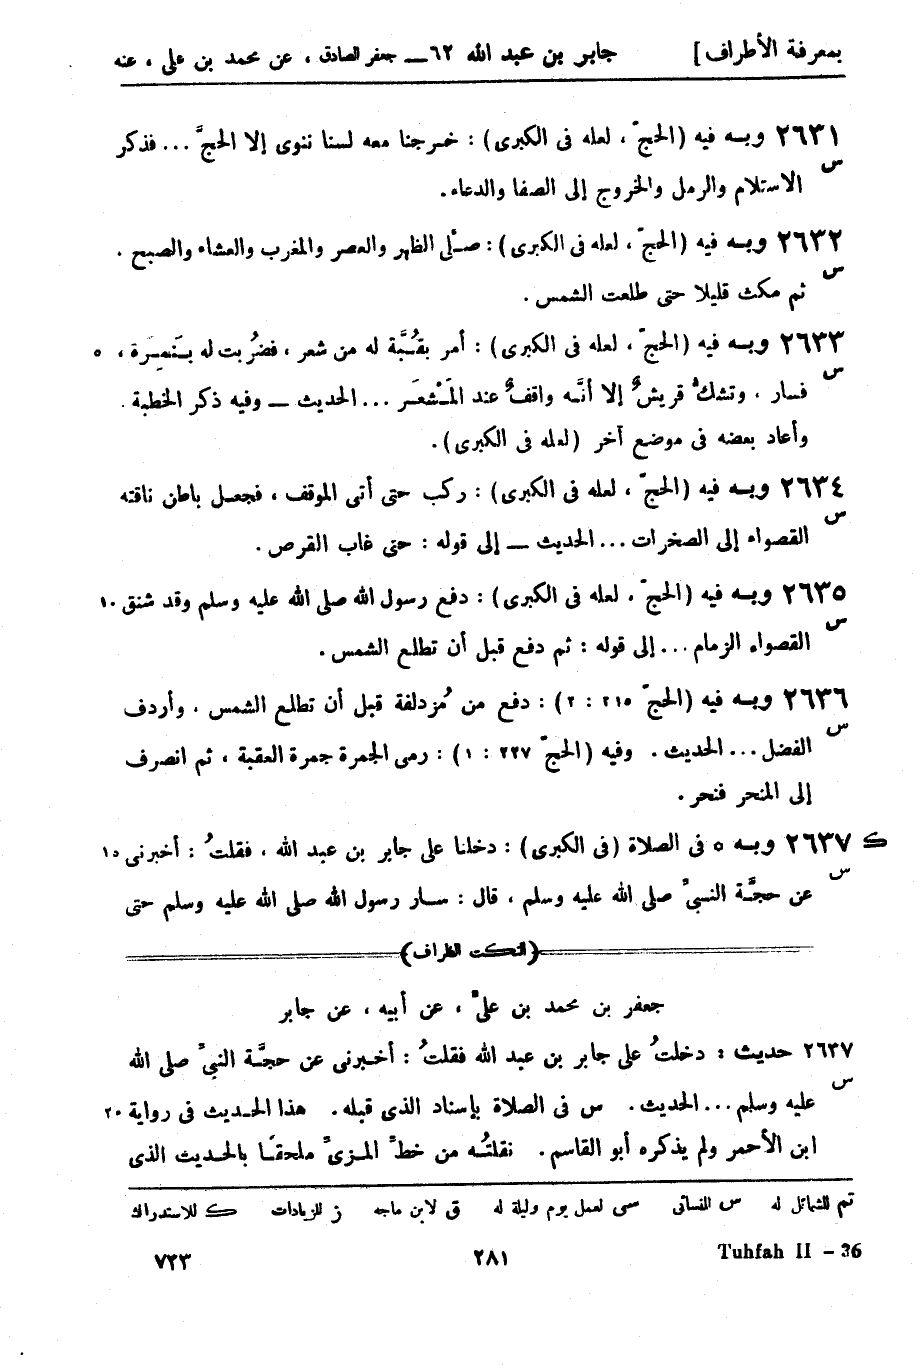 بمعرفة الأطراف] جابر بن عبد الله ٦٢ــ جعفر الصادق ، عن محمد بن على ، عنه
٢٦٣١ وبــه فيه (الحجّ ، لعله فى الكبرى) : خرجنا معه لسنا ننوى إلا الحجَّ ... فذكر
س الاستلام والرمل والخروج إلى الصفا والدعاء.
٢٦٣٢ وبــه فيه (الحجّ ، لعله فى الكبرى) : صلَّى الظهر والعصر والمغرب والعشاء والصبح .
س ثم مكث قليلا حتى طلعت الشمس .
٢٦٣٣ وبــه فيه (الحجّ ، لعله فى الكبرى) : أمر بقُبَّة له من شعر ، فضُربت له بنَمِرَة ، ٥
س فسار ، وتشكُّ قريشٌ إلا أنَّه واقفٌ عند المَشْعَر ... الحديث ــ وفيه ذكر الخطبة .
وأعاد بعضه فى موضع آخر (لعله فى الكبرى) .
٢٦٣٤ وبــه فيه (الحجّ ، لعله فى الكبرى) : ركب حتى أتى الموقف ، فجعل باطن ناقته
س القصواء إلى الصخرات ... الحديث ــ إلى قوله : حتى غاب القرص .
٢٦٣٥ وبــه فيه (الحجّ ، لعله فى الكبرى) : دفع رسول الله صلى الله عليه وسلم وقد شنق ١٠
س القصواء الزمام ... إلى قوله : ثم دفع قبل أن تطلع الشمس .
٢٦٣٦ وبــه فيه (الحجّ ٢١٥ : ٢) : دفع من مُزدلفة قبل أن تطلع الشمس ، وأردف
س الفضل ... الحديث . وفيه (الحجّ ٢٢٧ : ١) : رمى الجمرة جمرة العقبة ، ثم انصرف
إلى المنحر فنحر .
ك ٢٦٣٧ وبــه ٥ فى الصلاة (فى الكبرى) : دخلنا على جابر بن عبد الله ، فقلتُ : أخبرنى ١٥
س عن حجَّة النبىّ صلى الله عليه وسلم ، قال : سار رسول الله صلى الله عليه وسلم حتى
(النكت الظراف)
جعفر بن محمد بن علىّ ، عن أبيه ، عن جابر
٢٦٣٧ حديث : دخلتُ على جابر بن عبد الله فقلتُ : أخبرنى عن حجَّة النبىّ صلى الله
س عليه وسلم ... الحديث . س فى الصلاة بإسناد الذى قبله . هذا الحديث فى رواية ٢٠
ابن الأحمر ولم يذكره أبو القاسم . نقلتُه من خطّ المزىّ ملحقًا بالحديث الذى
تم للشمائل له س للنسائى سى لعمل يوم وليلة له ق لابن ماجه ز للزيادات ك للاستدراك
٧٢٣ ٢٨١ Tuhfah II – 36